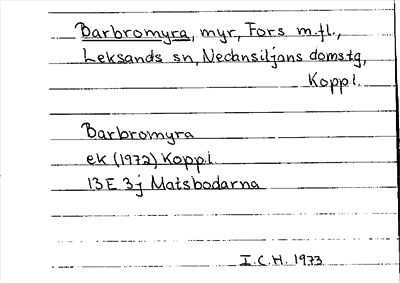 Barbromyra, myr, Fors m.fl.,
Leksands sn, Nedansiljans domstg,
Koppl.
Barbromyra
ek (1972) Koppl
13E 3j Matsbodarna
I.C.H. 1973